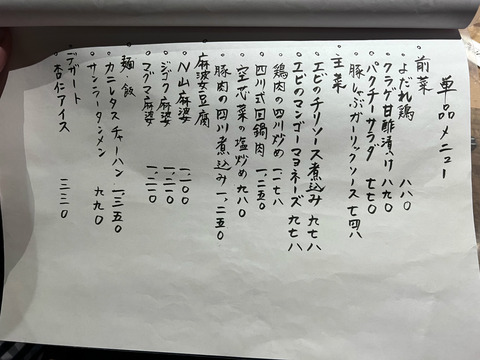 単品メニュー
前菜
よだれ鶏 八八〇
クラゲ甘酢漬け 八九〇
パクチーサラダ 七七〇
豚しゃぶガーリックソース 七四八
主菜
エビのチリソース煮込み 九七八
エビのマンゴーマヨネーズ 九七八
鶏肉の四川炒め 一、一七八
四川式回鍋肉 一、二五〇
空芯菜の塩炒め 九八〇
豚肉の四川煮込み 一、二五〇
麻婆豆腐
N山麻婆 一、一〇〇
ジゴク麻婆 一、二一〇
マグマ麻婆 一、二一〇
麺・飯
カニレタスチャーハン 一、三五〇
サンラータンメン 九九〇
デザート
杏仁アイス 三三〇